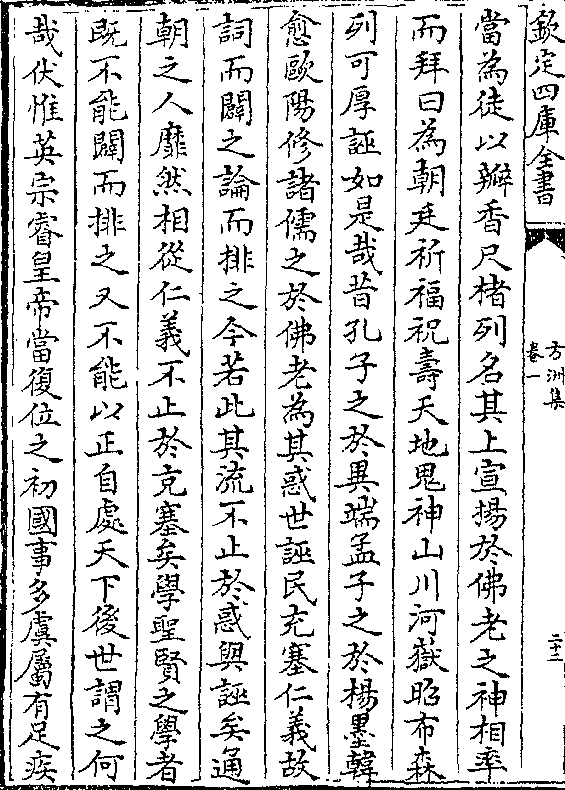 欽定四庫全書
方洲集
卷一
二十二
當為徒以瓣香尺楮列名其上宣揚於佛老之神相率
而拜曰為朝廷祈福祝壽天地鬼神山川河嶽昭布森
列可厚誣如是哉昔孔子之於異端孟子之於楊墨韓
愈歐陽修諸儒之於佛老為其惑世誣民充塞仁義故
詞而闢之論而排之今若此其流不止於惑與誣矣通
朝之人靡然相從仁義不止於充塞矣學聖賢之學者
既不能闢而排之又不能以正自處天下後世謂之何
哉伏惟英宗睿皇帝當復位之初國事多虞屬有足疾